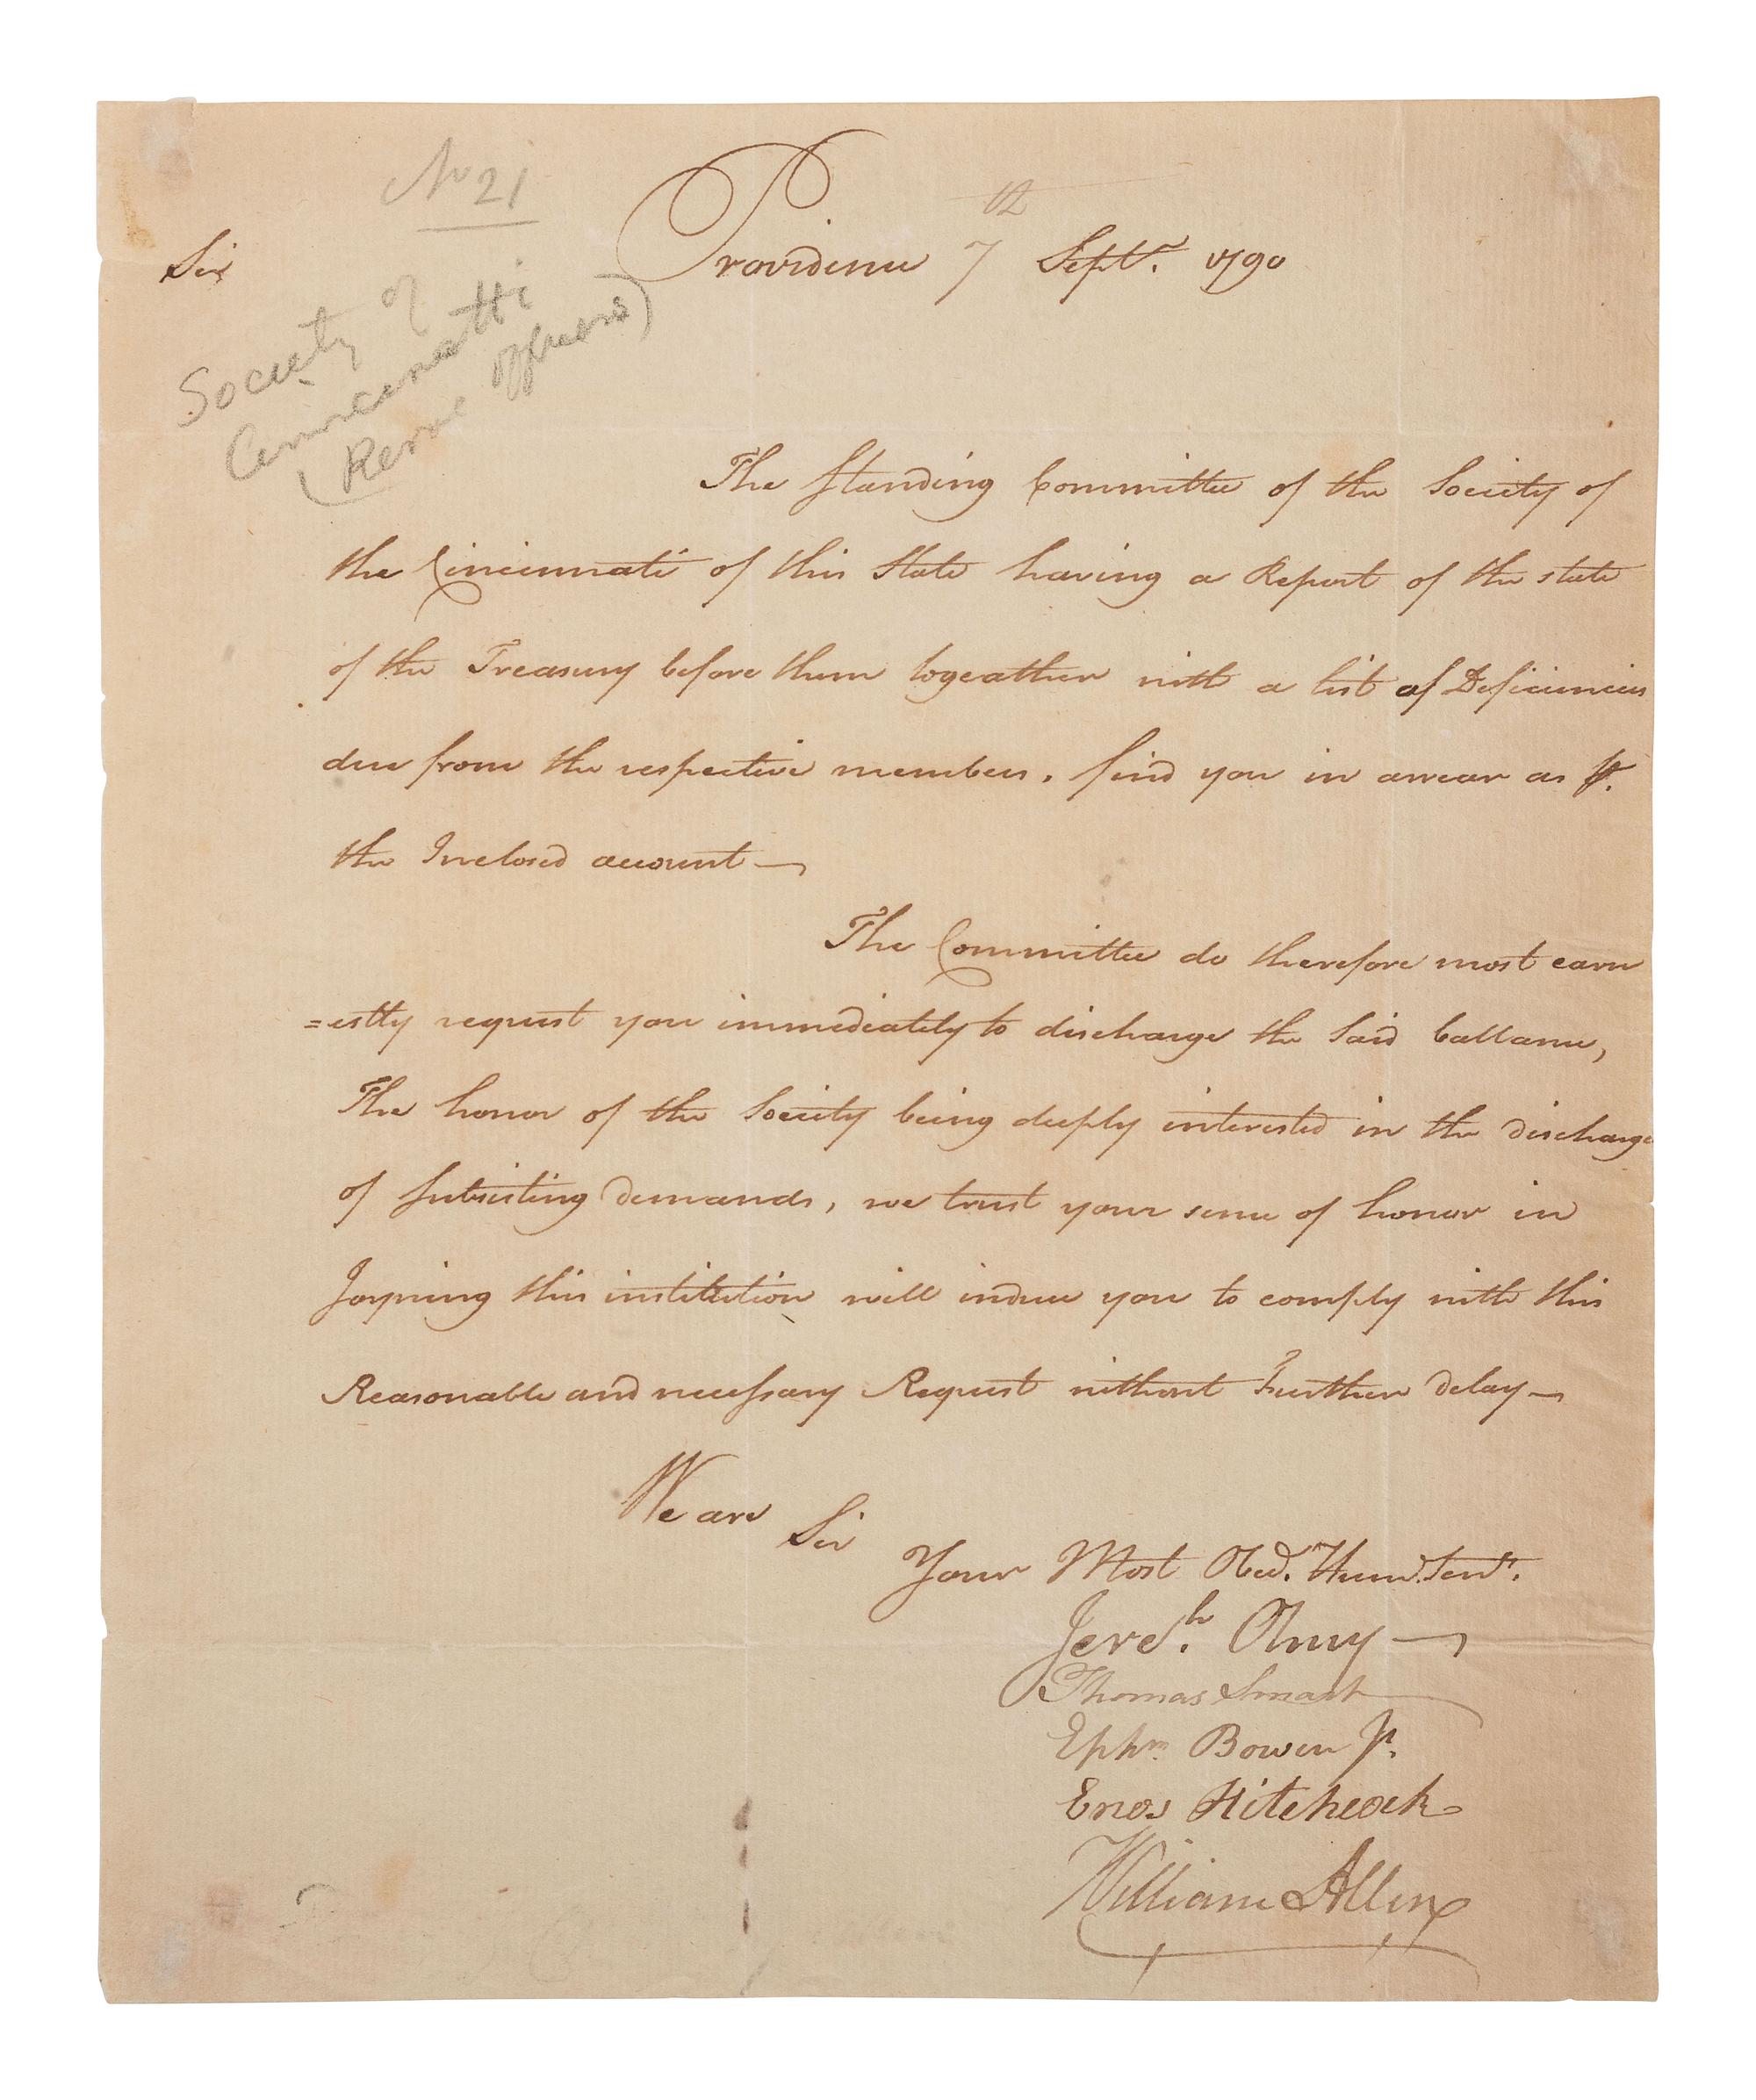 No 21
Sir
Providence 7th Septr. 1790
Society of
Cincinnatti
(Revol officers)
The Standing Committee of the Society of
the Cincinnati of this State having a Report of the state
of the Treasury before them togeather with a list of Deficiencies
due from the respective members, find you in arrear as pr.
the Inclosed account—
The Committee do therefore most earn
=estly request you immediately to discharge the said ballance,
The honor of the Society being deeply interested in the discharge
of subsisting demands, we trust your sense of honor in
Joyning this institution will induce you to comply with this
Reasonable and necessary Request without Further delay—
We are
Sir
Your Most Obed. Hum. Servts.
Jereh. Olney
Thomas Smart
Ephm. Bowen Jr.
Enos Hitchcock
William Allen